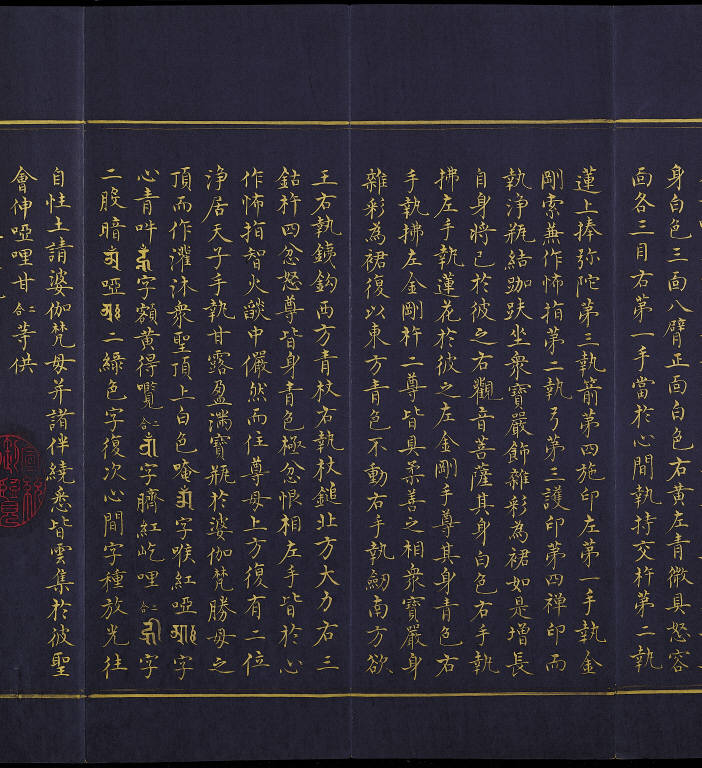 身白色三面八臂正面白色右黃左青微具怒容
面各三目右第一手當於心間執持交杵第二執
蓮上捧弥陀第三執箭第四施印左第一手執金
剛索兼作怖指第二執弓第三護印第四禅印而
執浄瓶結跏趺坐衆寶嚴飾雜彩為裙如是增長
自身將已於彼之右觀音菩薩其身白色右手執
拂左手執蓮花於彼之左金剛手尊其身青色右
手執拂左金剛杵二尊皆具柔善之相衆寶嚴身
雜彩為裙復以東方青色不動右手執劒南方欲
王右執鐵鈎西方青杖右執杖鎚北方大力右三
鈷杵四忿怒尊皆身青色極忿恨相左手皆於心
作怖指智火燄中儼然而住尊母上方復有二位
浄居天子手執甘露盈滿寶瓶於婆伽梵勝母之
頂而作灌沐衆聖頂上白色唵字喉紅啞字
心青吽字額黃得囕二合字臍紅屹哩二合字
二股暗啞二綠色字復次心間字種放光往
自性土請婆伽梵母并諸伴繞悉皆雲集於彼聖
會伸啞哩甘二合等供